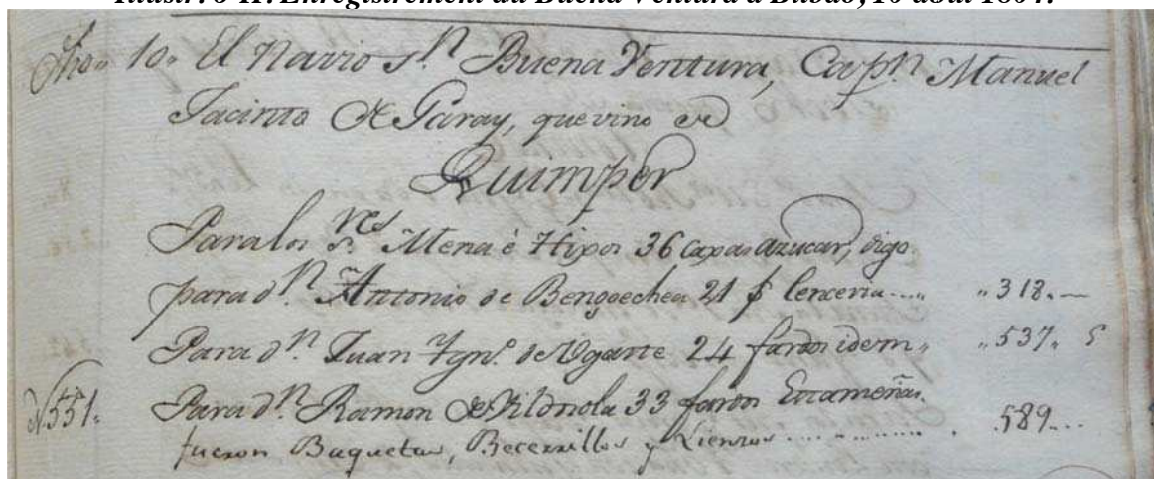 Illustr. 6-II. Enregistrement du Buena Ventura à Bilbao, 10 août 1804.
10. El Navio Sn Buena Ventura, Capn Manuel
Jacinto de Garay, que vino de
Quimper
Para los Sres Mena è Hijos 36 caxas azucar, digo
para dn Antonio de Bengoechea 21 f lenceria.... „318.—
Para dn Juan Ygno de Ugarte 24 fardos idem „ „537„ 5
N551. Para dn Ramon de 33 fardos Estameñas. 589...
fueron Baquetas, Becerrillos y Lienzos ..........